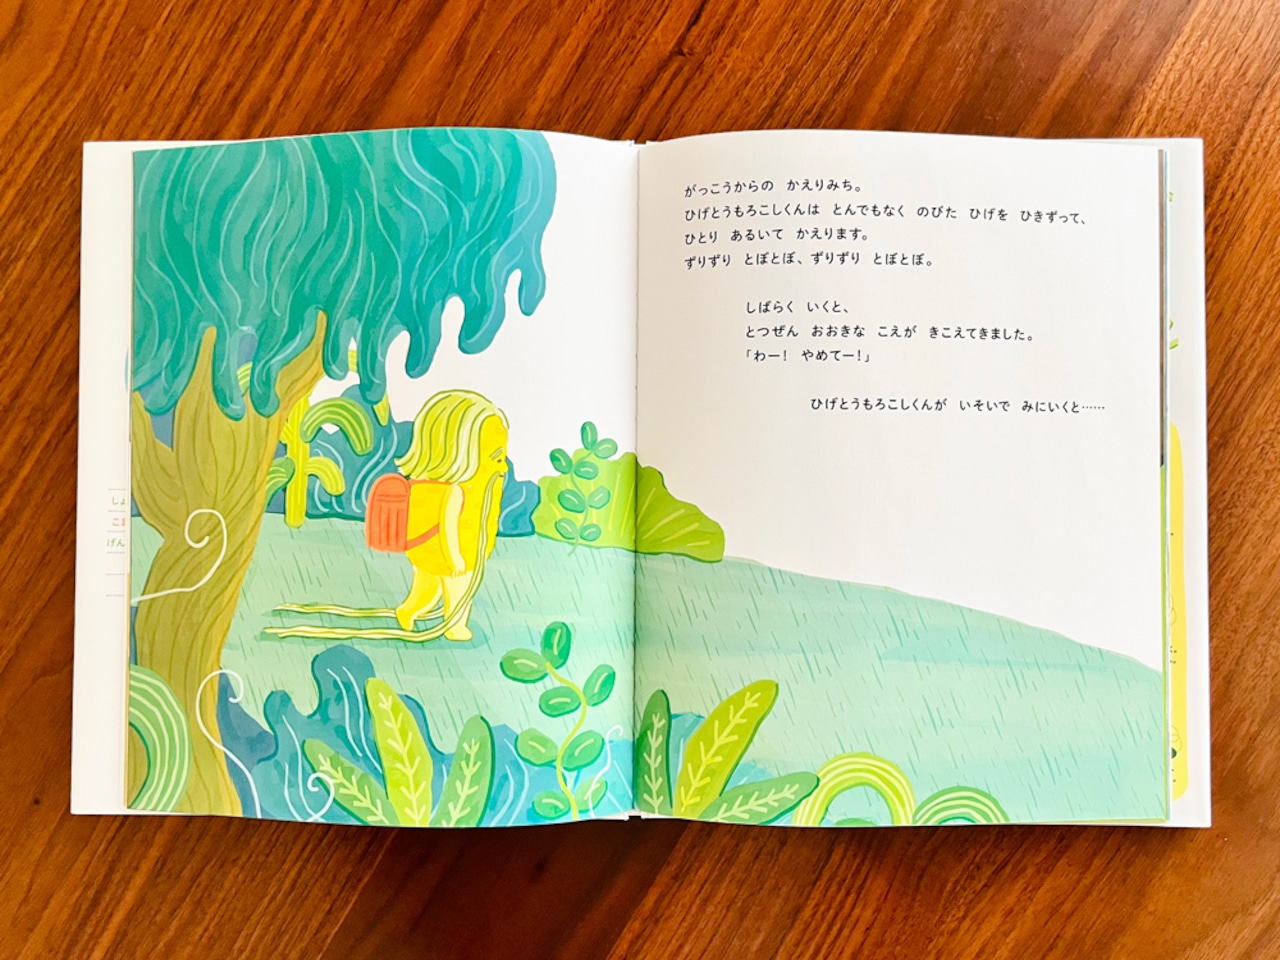 がっこうからの　かえりみち。
ひげとうもろこしくんは　とんでもなく　のびた　ひげを　ひきずって、
ひとり　あるいて　かえります。
ずりずり　とぼとぼ、ずりずり　とぼとぼ。
しばらく　いくと、
とつぜん　おおきな　こえが　きこえてきました。
「わー！　やめてー！」
ひげとうもろこしくんが　いそいで　みにいくと……